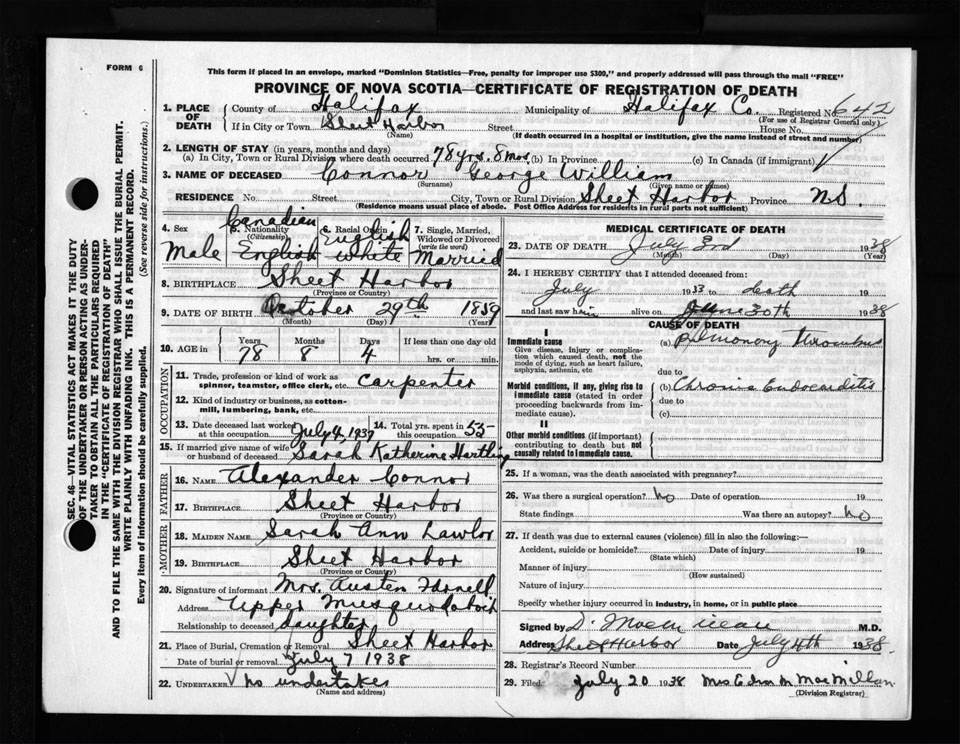 FORM 6
This form if placed in an envelope, marked "Dominion Statistics—Free, penalty for improper use $300," and properly addressed will pass through the mail "FREE"
PROVINCE OF NOVA SCOTIA—CERTIFICATE OF REGISTRATION OF DEATH
SEC. 46—VITAL STATISTICS ACT MAKES IT THE DUTY
OF THE UNDERTAKER OR PERSON ACTING AS UNDER-
TAKER TO OBTAIN ALL THE PARTICULARS REQUIRED
IN THE "CERTIFICATE OF REGISTRATION OF DEATH"
AND TO FILE THE SAME WITH THE DIVISION REGISTRAR WHO SHALL ISSUE THE BURIAL PERMIT.
WRITE PLAINLY WITH UNFADING INK. THIS IS A PERMANENT RECORD.
Every item of information should be carefully supplied. (See reverse side for instructions.)
1. PLACE OF DEATH County of Halifax Municipality of Halifax Co. Registered No. 642
(For use of Registrar General only)
If in City or Town Sheet Harbor Street House No.
(Name) (If death occurred in a hospital or institution, give the name instead of street and number)
2. LENGTH OF STAY (in years, months and days)
(a) In City, Town or Rural Division where death occurred 78 yrs. 8 mos. (b) In Province (c) In Canada (if immigrant)
3. NAME OF DECEASED Connor George William
(Surname) (Given name or names)
RESIDENCE No. Street City, Town or Rural Division Sheet Harbor Province N.S.
(Residence means usual place of abode. Post Office Address for residents in rural parts not sufficient)
4. Sex Male
5. Nationality (Citizenship) Canadian English
6. Racial Origin English White
7. Single, Married, Widowed or Divorced (write the word) Married
8. BIRTHPLACE Sheet Harbor
(Province or Country)
9. DATE OF BIRTH October 29th 1859
(Month) (Day) (Year)
10. AGE in Years Months Days If less than one day old
78 8 4 hrs. or min.
OCCUPATION
11. Trade, profession or kind of work as spinner, teamster, office clerk, etc. Carpenter
12. Kind of industry or business, as cotton-mill, lumbering, bank, etc.
13. Date deceased last worked at this occupation July 4, 1937 14. Total yrs. spent in this occupation 55
15. If married give name of wife or husband of deceased Sarah Katherine Hartling
FATHER
16. NAME Alexander Connor
17. BIRTHPLACE Sheet Harbor
(Province or Country)
MOTHER
18. MAIDEN NAME Sarah Ann Lawlor
19. BIRTHPLACE Sheet Harbor
(Province or Country)
20. Signature of informant Mrs. Austen
Address Upper Musquodoboit
Relationship to deceased daughter
21. Place of Burial, Cremation or Removal Sheet Harbor
Date of burial or removal July 7 1938
22. UNDERTAKER no undertaker
(Name and address)
MEDICAL CERTIFICATE OF DEATH
23. DATE OF DEATH July 3rd 1938
(Month) (Day) (Year)
24. I HEREBY CERTIFY that I attended deceased from:
July 1933 to death 19
and last saw him alive on June 30th 1938
CAUSE OF DEATH
I
Immediate cause
Give disease, injury or complication which caused death, not the mode of dying, such as heart failure, asphyxia, asthenia, etc.
(a) Pulmonary thrombus
due to
Morbid conditions, if any, giving rise to immediate cause (stated in order proceeding backwards from immediate cause).
(b) Chronic Endocarditis
due to
(c)
II
Other morbid conditions (if important) contributing to death but not causally related to immediate cause.
25. If a woman, was the death associated with pregnancy?
26. Was there a surgical operation? No Date of operation 19
State findings Was there an autopsy? No
27. If death was due to external causes (violence) fill in also the following:—
Accident, suicide or homicide? Date of injury 19
(State which)
Manner of injury
(How sustained)
Nature of injury
Specify whether injury occurred in industry, in home, or in public place
Signed by D. M.D.
Address Sheet Harbor Date July 4th 1938
28. Registrar's Record Number
29. Filed July 20 1938 Mrs Edna M MacMillan
(Division Registrar)